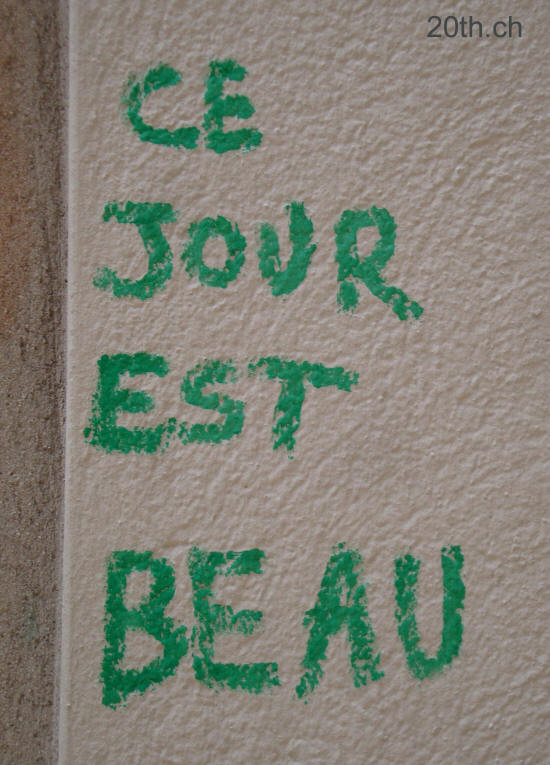 20th.ch
CE
JOUR
EST
BEAU